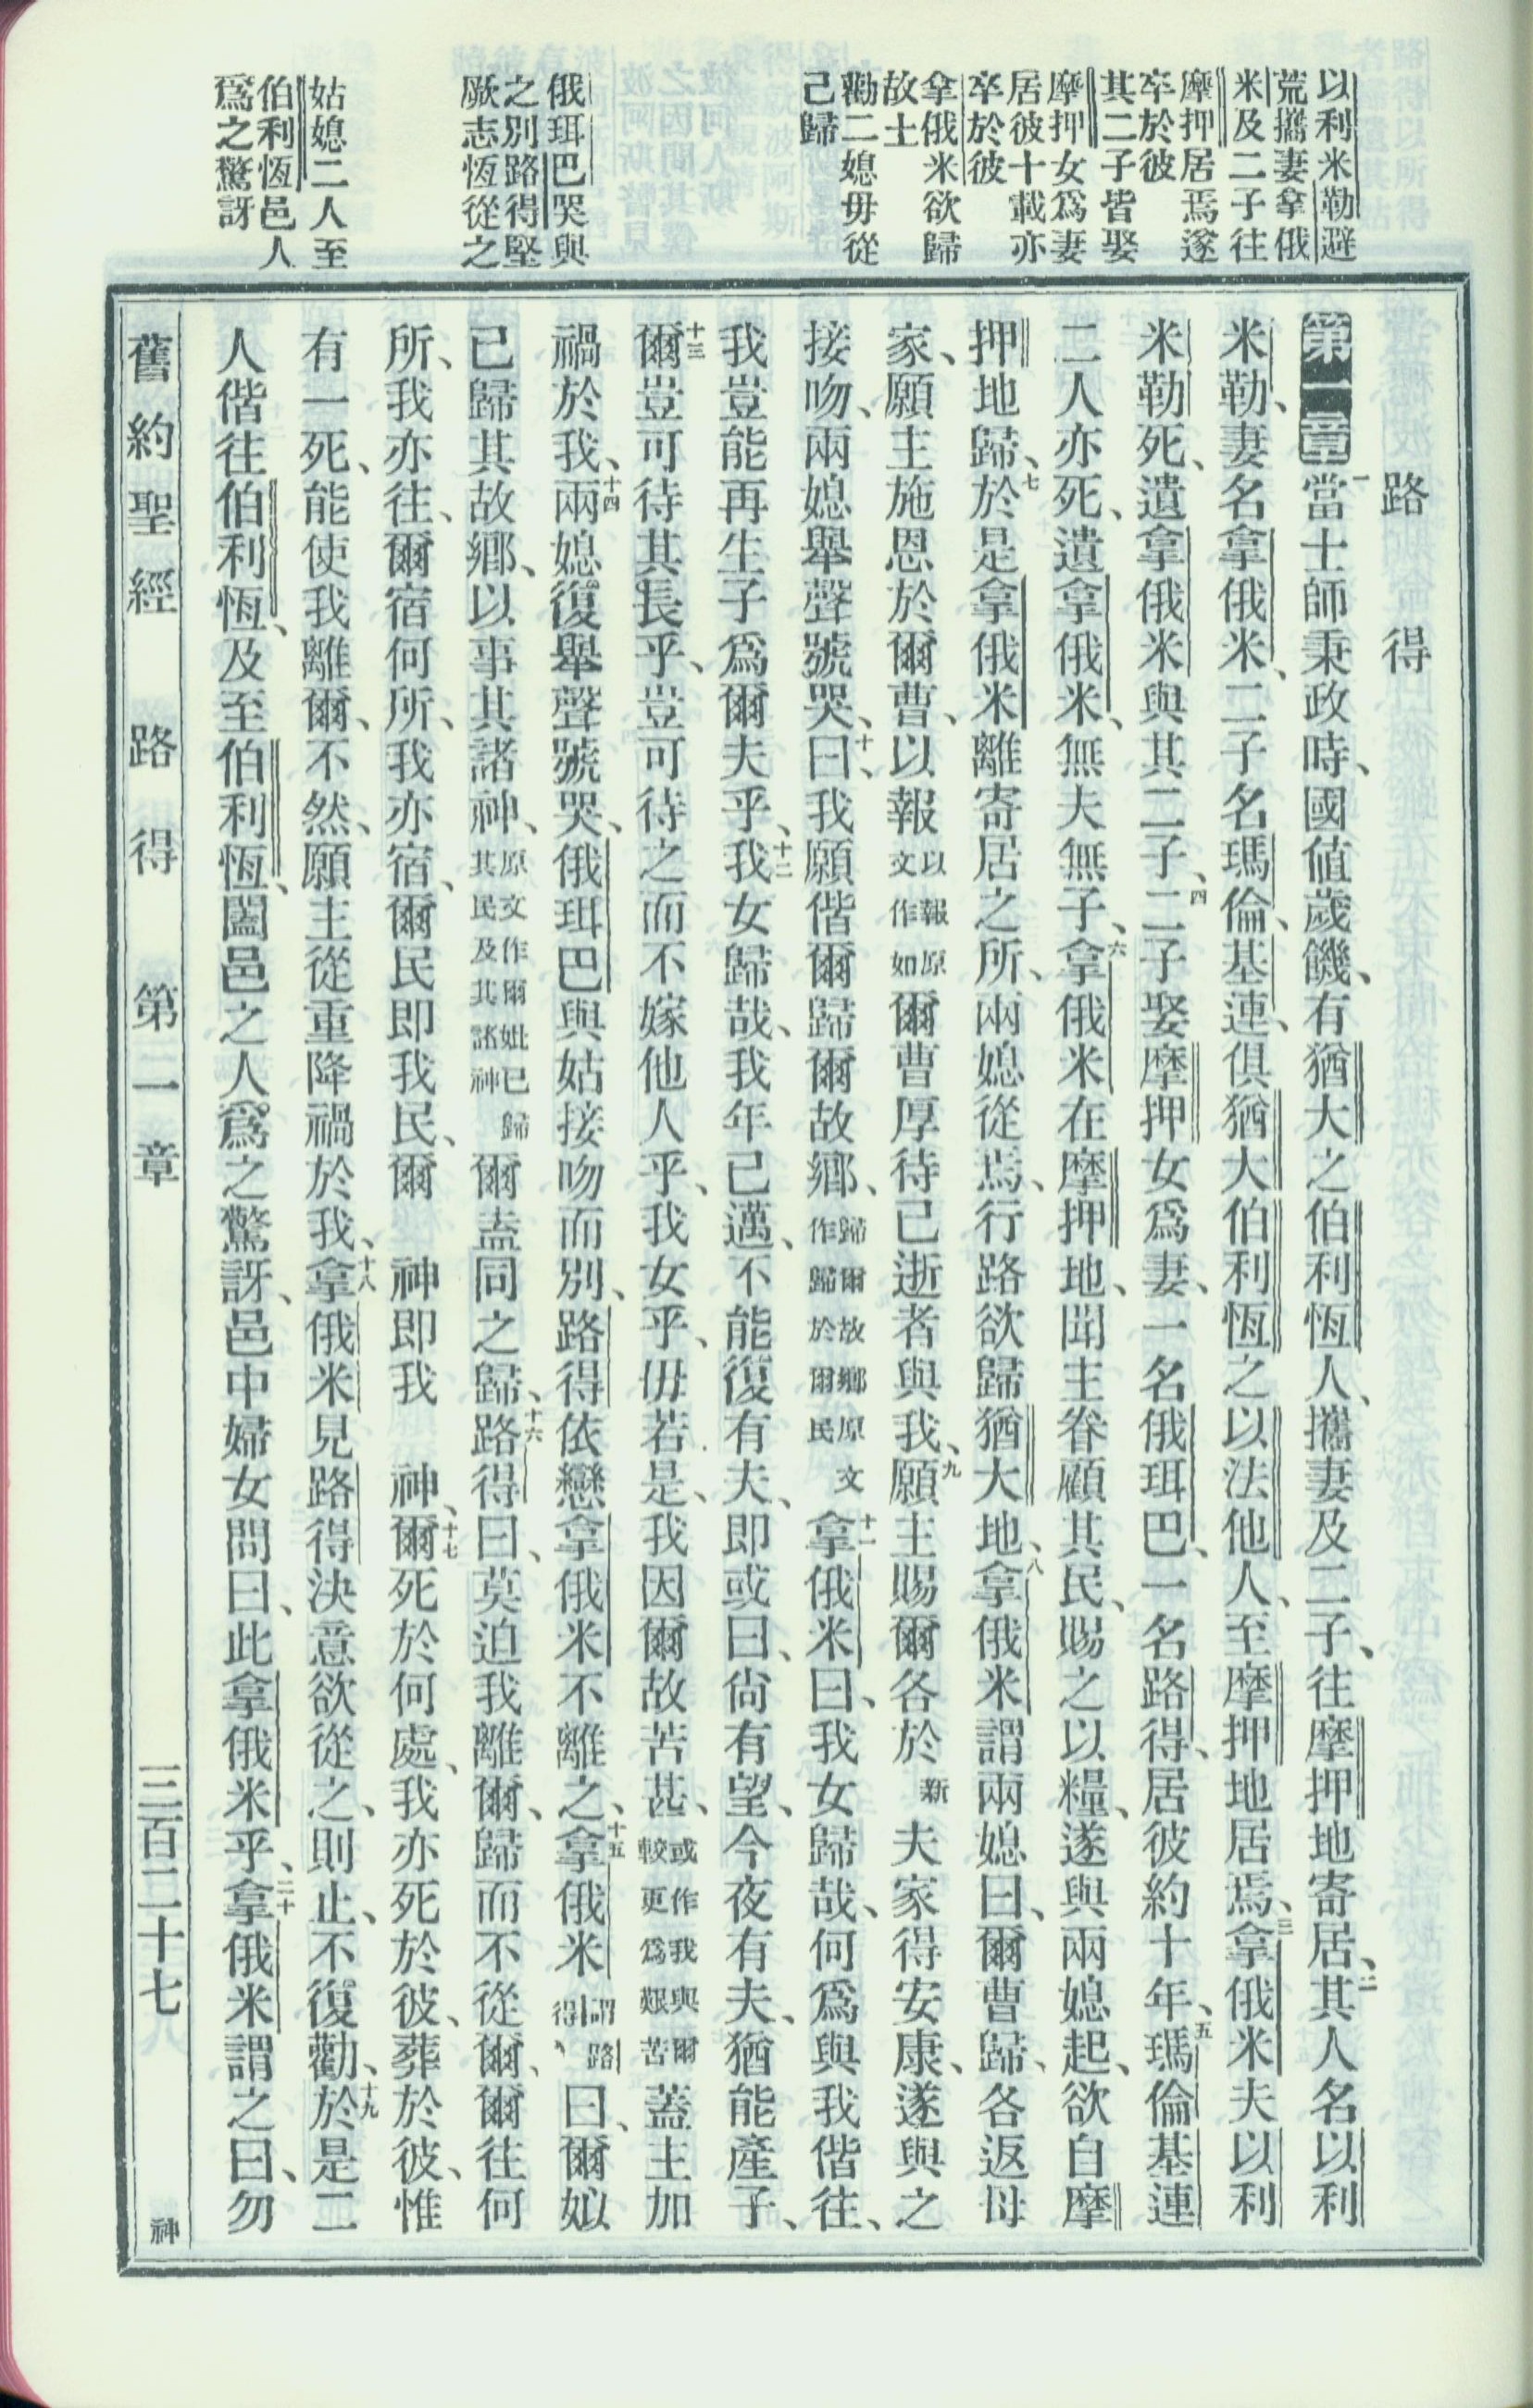 以利米勒避
荒攜妻拿俄
米及二子往
摩押居焉遂
卒於彼
其二子皆娶
摩押女爲妻
居彼十載亦
卒於彼
拿俄米欲歸
故土
勸二媳毋從
己歸
俄珥巴哭與
之別路得堅
厥志恆從之
姑媳二人至
伯利恆邑人
爲之驚訝
路得
第一章一當士師秉政時、國値歲饑、有猶大之伯利恆人、攜妻及二子、往摩押地寄居、二其人名以利
米勒、妻名拿俄米、二子名瑪倫、基連、俱猶大伯利恆之以法他人、至摩押地居焉、三拿俄米夫以利
米勒死、遺拿俄米與其二子、四二子娶摩押女爲妻、一名俄珥巴、一名路得、居彼約十年、五瑪倫基連
二人亦死、遺拿俄米、無夫無子、六拿俄米在摩押地、聞主眷顧其民、賜之以糧、遂與兩媳起、欲自摩
押地歸、七於是拿俄米離寄居之所、兩媳從焉、行路欲歸猶大地、八拿俄米謂兩媳曰、爾曹歸、各返母
家、願主施恩於爾曹、以報以報原文作如爾曹厚待已逝者與我、九願主賜爾各於新夫家得安康、遂與之
接吻、兩媳舉聲號哭、十曰、我願偕爾歸爾故鄉、歸爾故鄉原文作歸於爾民十一拿俄米曰、我女歸哉、何爲與我偕往、
我豈能再生子爲爾夫乎、十二我女歸哉、我年已邁、不能復有夫、即或曰、尙有望、今夜有夫、猶能產子、
十三爾豈可待其長乎、豈可待之而不嫁他人乎、我女乎、毋若是、我因爾故苦甚、或作我與爾較更爲艱苦蓋主加
禍於我、十四兩媳復舉聲號哭、俄珥巴與姑接吻而別、路得依戀拿俄米不離之、十五拿俄米謂路得、曰、爾姒
已歸其故鄉、以事其諸神、原文作爾姒已歸其民及其諸神爾盍同之歸、十六路得曰、莫迫我離爾、歸而不從爾、爾往何
所、我亦往、爾宿何所、我亦宿、爾民即我民、爾 神即我 神、十七爾死於何處、我亦死於彼、葬於彼、惟
有一死、能使我離爾、不然、願主從重降禍於我、十八拿俄米見路得決意欲從之、則止、不復勸、十九於是二
人偕往伯利恆、及至伯利恆、闔邑之人爲之驚訝、邑中婦女問曰、此拿俄米乎、二十拿俄米謂之曰、勿
舊約聖經 路得 第一章 三百二十七 神